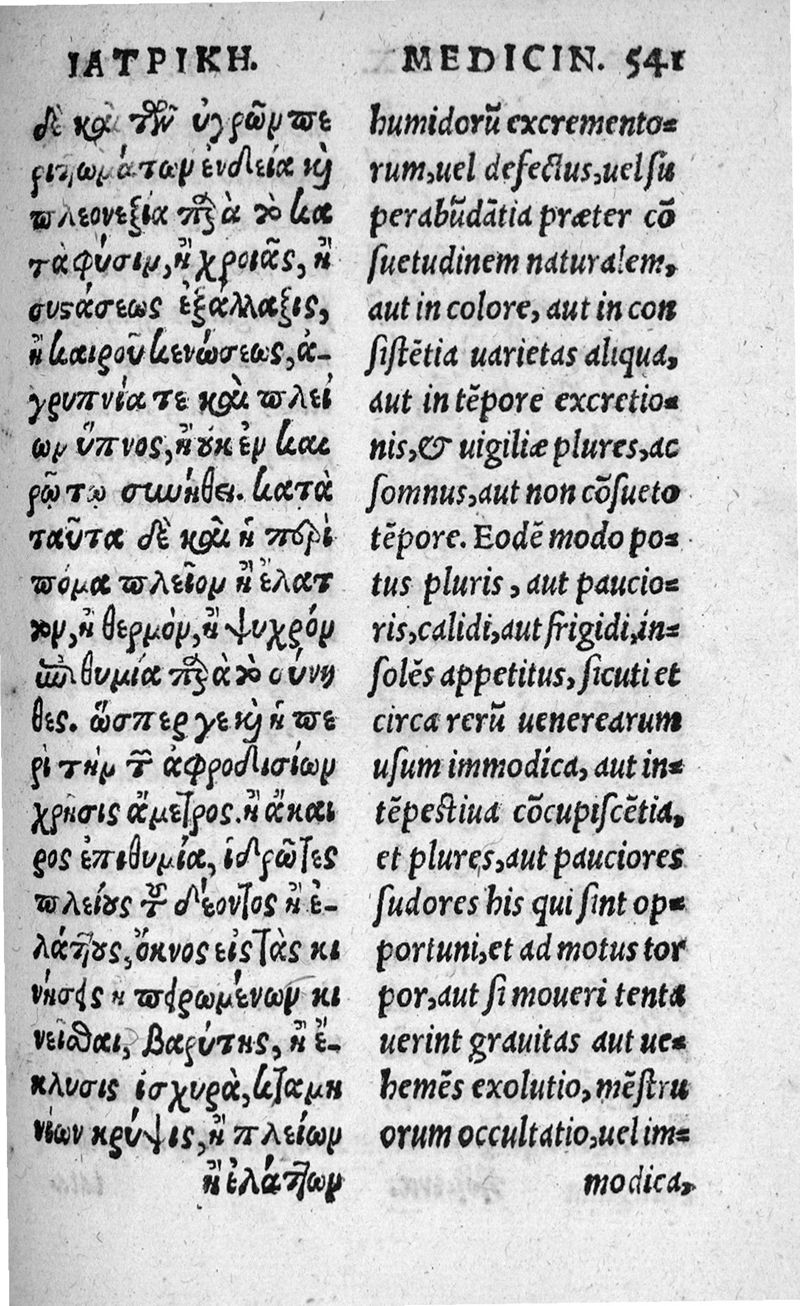 ΙΑΤΡΙΚΗ.
δὲ καὶ τῶν ὑγρῶν πε
ριττωμάτων ἐνδεία κὶ
πλεονεξία παρὰ τὸ κα
τὰ φύσιν, ἢ χροιᾶς, ἢ
συστάσεως ἐξάλλαξις,
ἢ καιροῦ κενώσεως, ἀ-
γρυπνία τε καὶ πλεί
ων ὕπνος, ἢ οὐκ ἐν και
ρῷ τῷ συνήθει. κατὰ
ταῦτα δὲ καὶ ἡ περὶ
πόμα πλεῖον ἢ ἔλατ
τον, ἢ θερμὸν, ἢ ψυχρόν
ἐπιθυμία παρὰ τὸ σύνη
θες. ὥσπερ γε κὶ ἡ πε
ρὶ τὴν τῶν ἀφροδισίων
χρῆσις ἄμετρος. ἢ ἄκαι
ρος ἐπιθυμία, ἱδρῶτες
πλείους τοῦ δέοντος ἢ ἐ-
λάττους, ὄκνος εἰς τὰς κι
νήσεις ἢ πειρωμένων κι
νεῖσθαι, βαρύτης, ἢ ἔ-
κλυσις ἰσχυρὰ, καταμη
νίων κρύψις, ἢ πλείων
ἢ ἐλάττων
MEDICIN. 541
humidorũ excremento=
rum, uel defectus, uel su
perabũdãtia præter cõ
suetudinem naturalem,
aut in colore, aut in con
sistẽtia uarietas aliqua,
aut in tẽpore excretio=
nis, & uigiliæ plures, ac
somnus, aut non cõsueto
tẽpore. Eodẽ modo po=
tus pluris, aut paucio=
ris, calidi, aut frigidi, in=
solẽs appetitus, sicuti et
circa rerũ uenerearum
usum immodica, aut in=
tẽpestiua cõcupiscẽtia,
et plures, aut pauciores
sudores his qui sint op=
portuni, et ad motus tor
por, aut si moueri tenta
uerint grauitas aut ue=
hemẽs exolutio, mẽstru
orum occultatio, uel im=
modica,